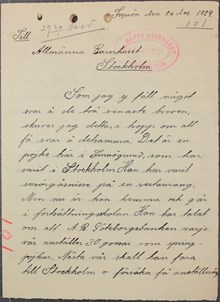 Furön den 26 dec. 1929
Till
Allmänna Barnhuset
Stockholm
Som jag ej fått något
svar å de två senaste breven,
skriver jag detta, i hopp om att
få svar å detsamma. Det är en
pojke här i som har
varit i Stockholm. Han har varit
smörgåsnisse på en restaurang.
Men nu är han hemma och går
i fortsättningsskolan. Han har talat
om att A.B. Göteborgsbanken varje
vår anställer 50 gossar som spring-
pojkar. Nästa vår skall han fara
till Stockholm o försöka få anställning